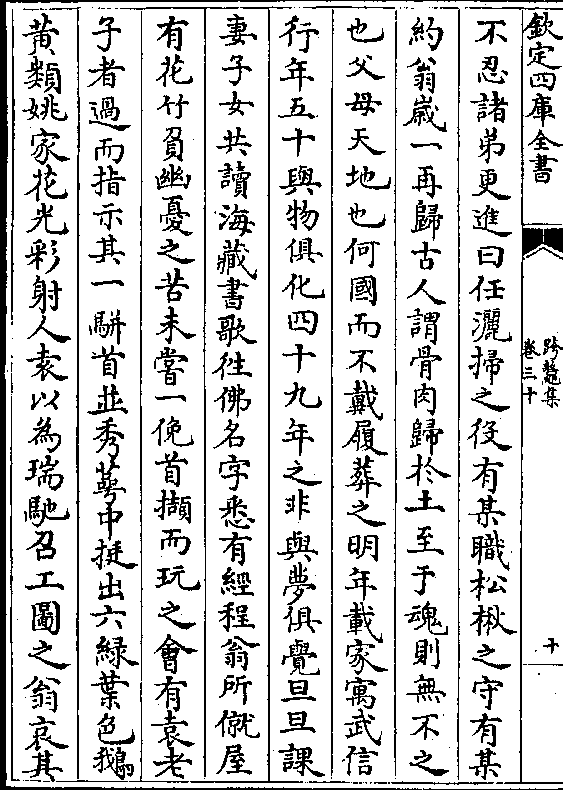 欽定四庫全書
跨鼇集
卷三十
十
不忍諸弟更進曰任灑掃之役有某職松楸之守有某
約翁嵗一再歸古人謂骨肉歸於土至于魂則無不之
也父母天地也何國而不戴履葬之明年載家寓武信
行年五十與物俱化四十九年之非與夢俱覺旦旦課
妻子女共讀海藏書歌徃佛名字悉有經程翁所僦屋
有花竹貧幽憂之苦未嘗一俛首擷而玩之會有袁老
子者過而指示其一騈首並秀萼中挺出六緑葉色鵝
黄類姚家花光彩射人袁以為瑞馳召工圖之翁哀其